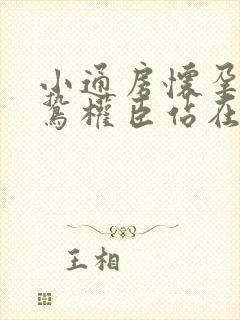 小通房怀孕
鸷权臣站在
王相